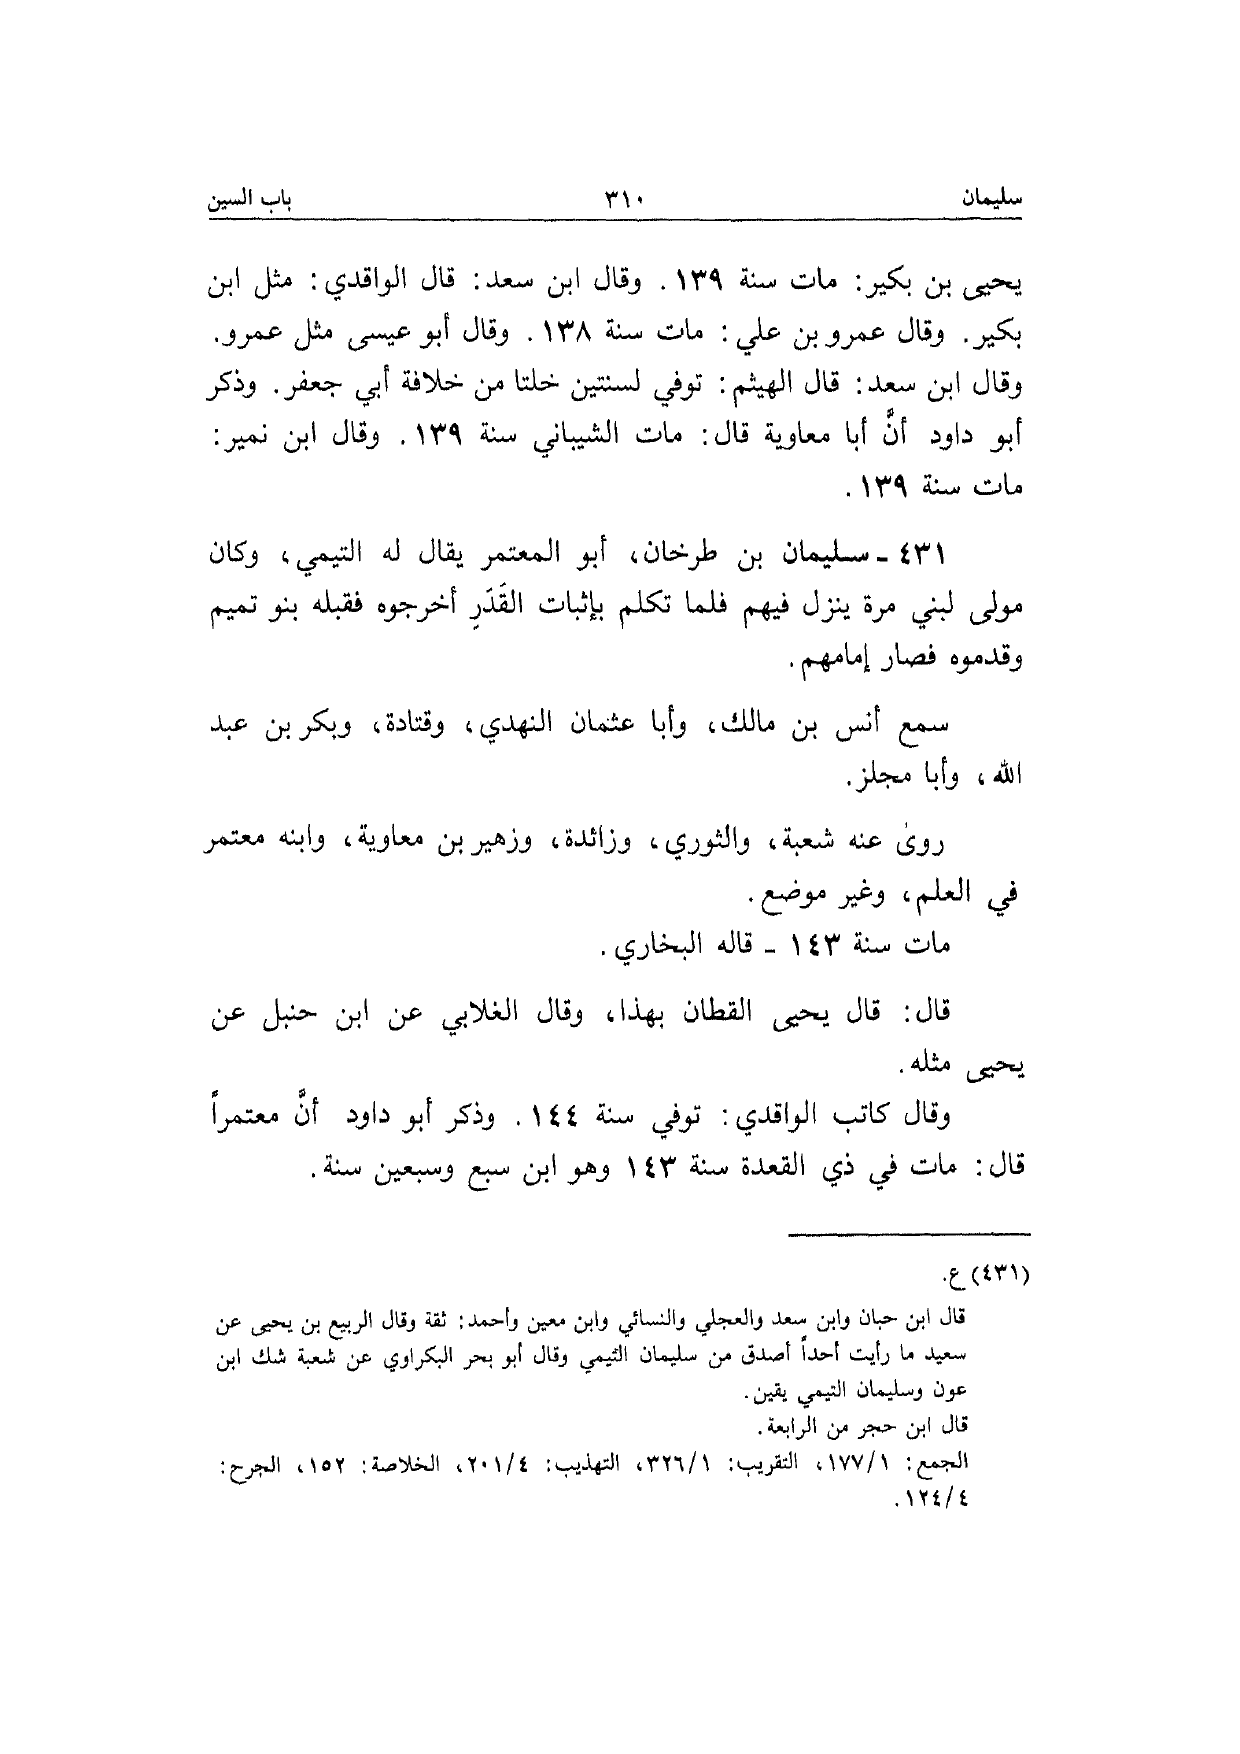 سليمان ٣١٠ باب السين
يحيى بن بكير: مات سنة ١٣٩. وقال ابن سعد: قال الواقدي: مثل ابن
بكير. وقال عمرو بن علي: مات سنة ١٣٨. وقال أبو عيسى مثل عمرو.
وقال ابن سعد: قال الهيثم: توفي لسنتين خلتا من خلافة أبي جعفر. وذكر
أبو داود أنَّ أبا معاوية قال: مات الشيباني سنة ١٣٩. وقال ابن نمير:
مات سنة ١٣٩.
٤٣١ - سليمان بن طرخان، أبو المعتمر يقال له التيمي، وكان
مولى لبني مرة ينزل فيهم فلما تكلم بإثبات القَدَرِ أخرجوه فقبله بنو تميم
وقدموه فصار إمامهم.
سمع أنس بن مالك، وأبا عثمان النهدي، وقتادة، وبكر بن عبد
الله، وأبا مجلز.
روىٰ عنه شعبة، والثوري، وزائدة، وزهير بن معاوية، وابنه معتمر
في العلم، وغير موضع.
مات سنة ١٤٣ - قاله البخاري.
قال: قال يحيى القطان بهذا، وقال الغلابي عن ابن حنبل عن
يحيى مثله.
وقال كاتب الواقدي: توفي سنة ١٤٤. وذكر أبو داود أنَّ معتمراً
قال: مات في ذي القعدة سنة ١٤٣ وهو ابن سبع وسبعين سنة.
(٤٣١) ع.
قال ابن حبان وابن سعد والعجلي والنسائي وابن معين وأحمد: ثقة وقال الربيع بن يحيى عن
سعيد ما رأيت أحداً أصدق من سليمان التيمي وقال أبو بحر البكراوي عن شعبة شك ابن
عون وسليمان التيمي يقين.
قال ابن حجر من الرابعة.
الجمع: ١٧٧/١، التقريب: ٣٢٦/١، التهذيب: ٢٠١/٤، الخلاصة: ١٥٢، الجرح:
١٢٤/٤.